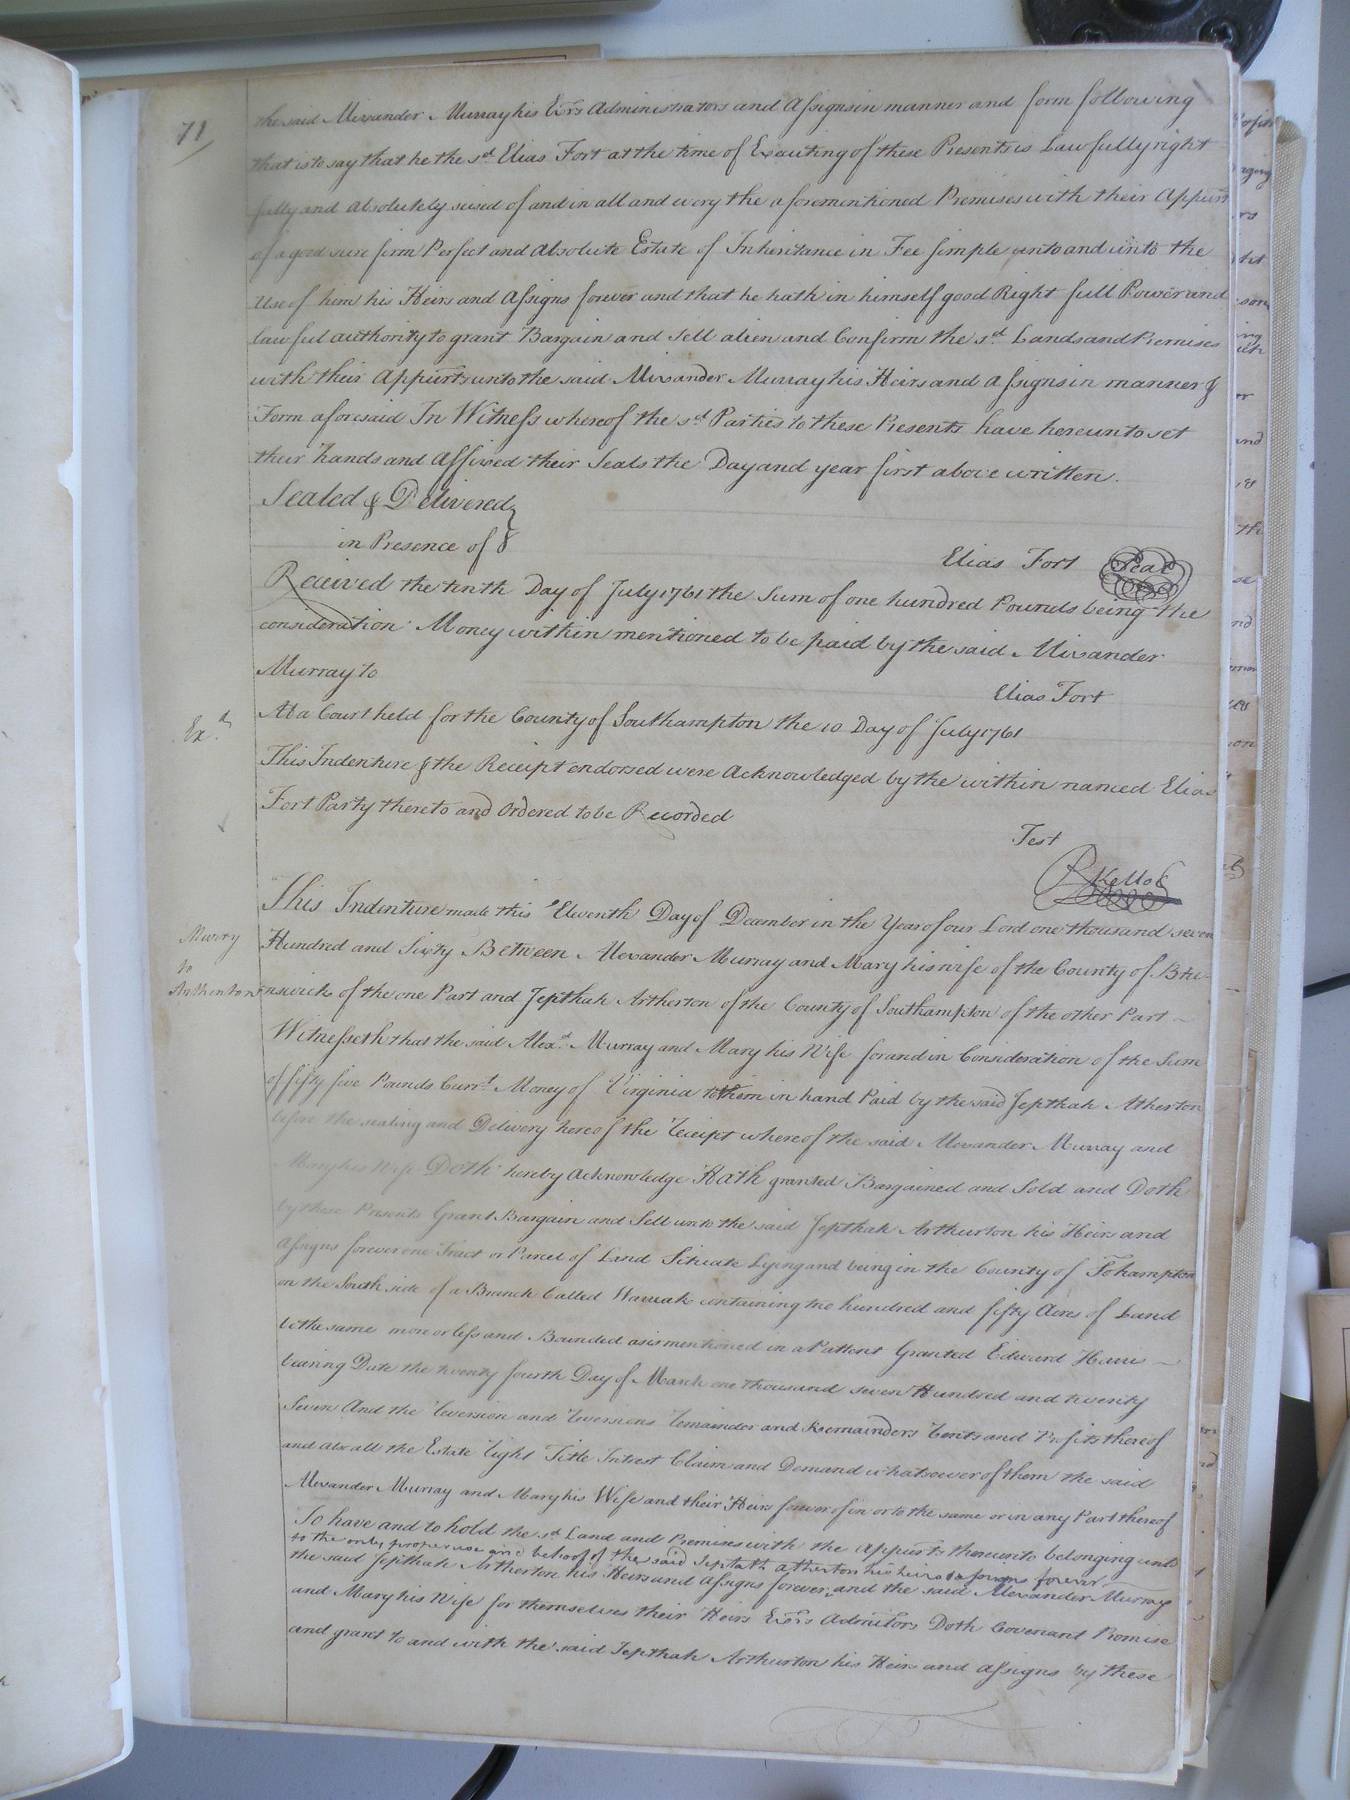 71/
the said Alexander Murray his Exrs Administrators and Assigns in manner and form following
that is to say that he the sd Elias Fort at the time of Executing of these Presents is Lawfully right
fully and absolutely seised of and in all and every the aforementioned Premises with their Appurts
of a good sure firm Perfect and Absolute Estate of Inheritance in Fee simple unto and unto the
Use of him his Heirs and Assigns forever and that he hath in himself good Right full Power and
lawful authority to grant Bargain and Sell alien and Confirm the sd Lands and Premises
with their Appurts unto the said Alexander Murray his Heirs and Assigns in manner &
Form aforesaid In Witness whereof the sd Parties to these Presents have hereunto set
their hands and Affixed their Seals the Day and year first above written.
Sealed & Delivered
in Presence of
Elias Fort Seal
Received the tenth Day of July 1761 the Sum of one hundred Pounds being the
consideration Money within mentioned to be paid by the said Alexander
Murray to
Elias Fort
Exd
At a Court held for the County of Southampton the 10 Day of July 1761
This Indenture & the Receipt endorsed were Acknowledged by the within named Elias
Fort Party thereto and Ordered to be Recorded
Test
R Kello C
This Indenture made this Eleventh Day of December in the Year of our Lord one thousand seven
Murry
to
Arthenton
Hundred and Sixty Between Alexander Murray and Mary his wife of the County of Bru-
nswick of the one Part and Jepthah Artherton of the County of Southampton of the other Part
Witnesseth that the said Alexd Murray and Mary his Wife for and in Consideration of the Sum
of fifty five Pounds Currt Money of Virginia to them in hand Paid by the said Jepthah Atherton
before the sealing and Delivery hereof the Receipt whereof the said Alexander Murray and
Mary his Wife Doth hereby Acknowledge Hath granted Bargained and Sold and Doth
by these Presents Grant Bargain and Sell unto the said Jepthah Arthurton his Heirs and
Assigns forever one Tract or Parcel of Land Situate Lying and being in the County of Sohampton
on the South side of a Branch Called containing two hundred and fifty Acres of Land
be the same more or less and Bounded as is mentioned in a Pattent Granted Edward
bearing Date the twenty fourth Day of March one thousand seven Hundred and twenty
Seven And the Reversion and Reversions Remainder and Remainders Rents and Profits thereof
and also all the Estate Right Title Intrest Claim and Demand whatsoever of them the said
Alexander Murray and Mary his Wife and their Heirs forever of in or to the same or in any Part thereof
To have and to hold the sd Land and Premises with the appurts thereunto belonging unto
to the only proper use and behoof of the said Jeptath atherton his heirs & assigns forever
the said Jepthah Artherton his Heirs and Assigns forever and the said Alexander Murray
and Mary his Wife for themselves their Heirs Exrs Admitors Doth Covenant Promise
and grant to and with the said Jepthah Arthurton his Heirs and Assigns by these